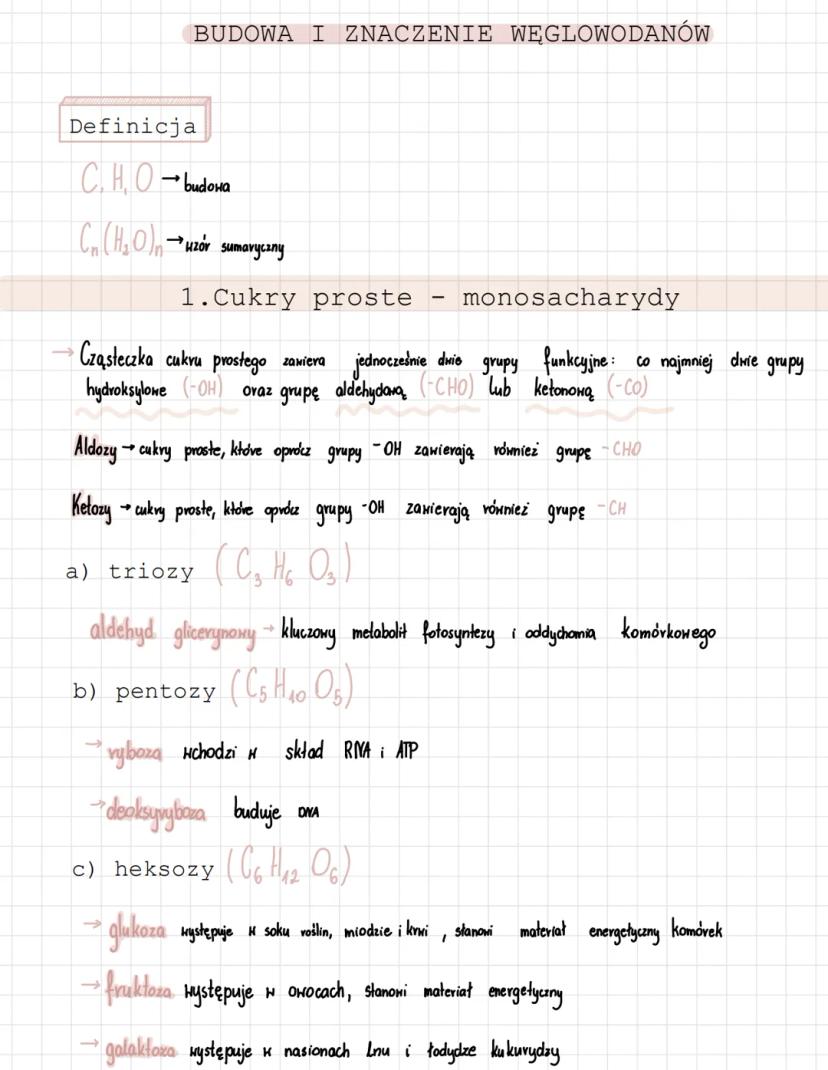 BUDOWA I ZNACZENIE WĘGLOWODANÓW
Definicja
C, H, O → budowa
Cₙ(H₂O)ₙ → wzór sumaryczny
1.Cukry proste - monosacharydy
→ Cząsteczka cukru prostego zawiera jednocześnie dwie grupy funkcyjne: co najmniej dwie grupy
hydroksylowe (-OH) oraz grupę aldehydową (-CHO) lub ketonową (-CO)
Aldozy → cukry proste, które oprócz grupy -OH zawierają również grupę -CHO
Ketozy → cukry proste, które oprócz grupy -OH zawierają również grupę -CH
a) triozy (C₃ H₆ O₃)
aldehyd glicerynowy → kluczowy metabolit fotosyntezy i oddychania komórkowego
b) pentozy (C₅ H₁₀ O₅)
→ ryboza wchodzi w skład RNA i ATP
→ deoksyryboza buduje DNA
c) heksozy (C₆ H₁₂ O₆)
→ glukoza występuje w soku roślin, miodzie i krwi, stanowi materiał energetyczny komórek
→ fruktoza występuje w owocach, stanowi materiał energetyczny
→ galaktoza występuje w nasionach lnu i łodydze kukurydzy